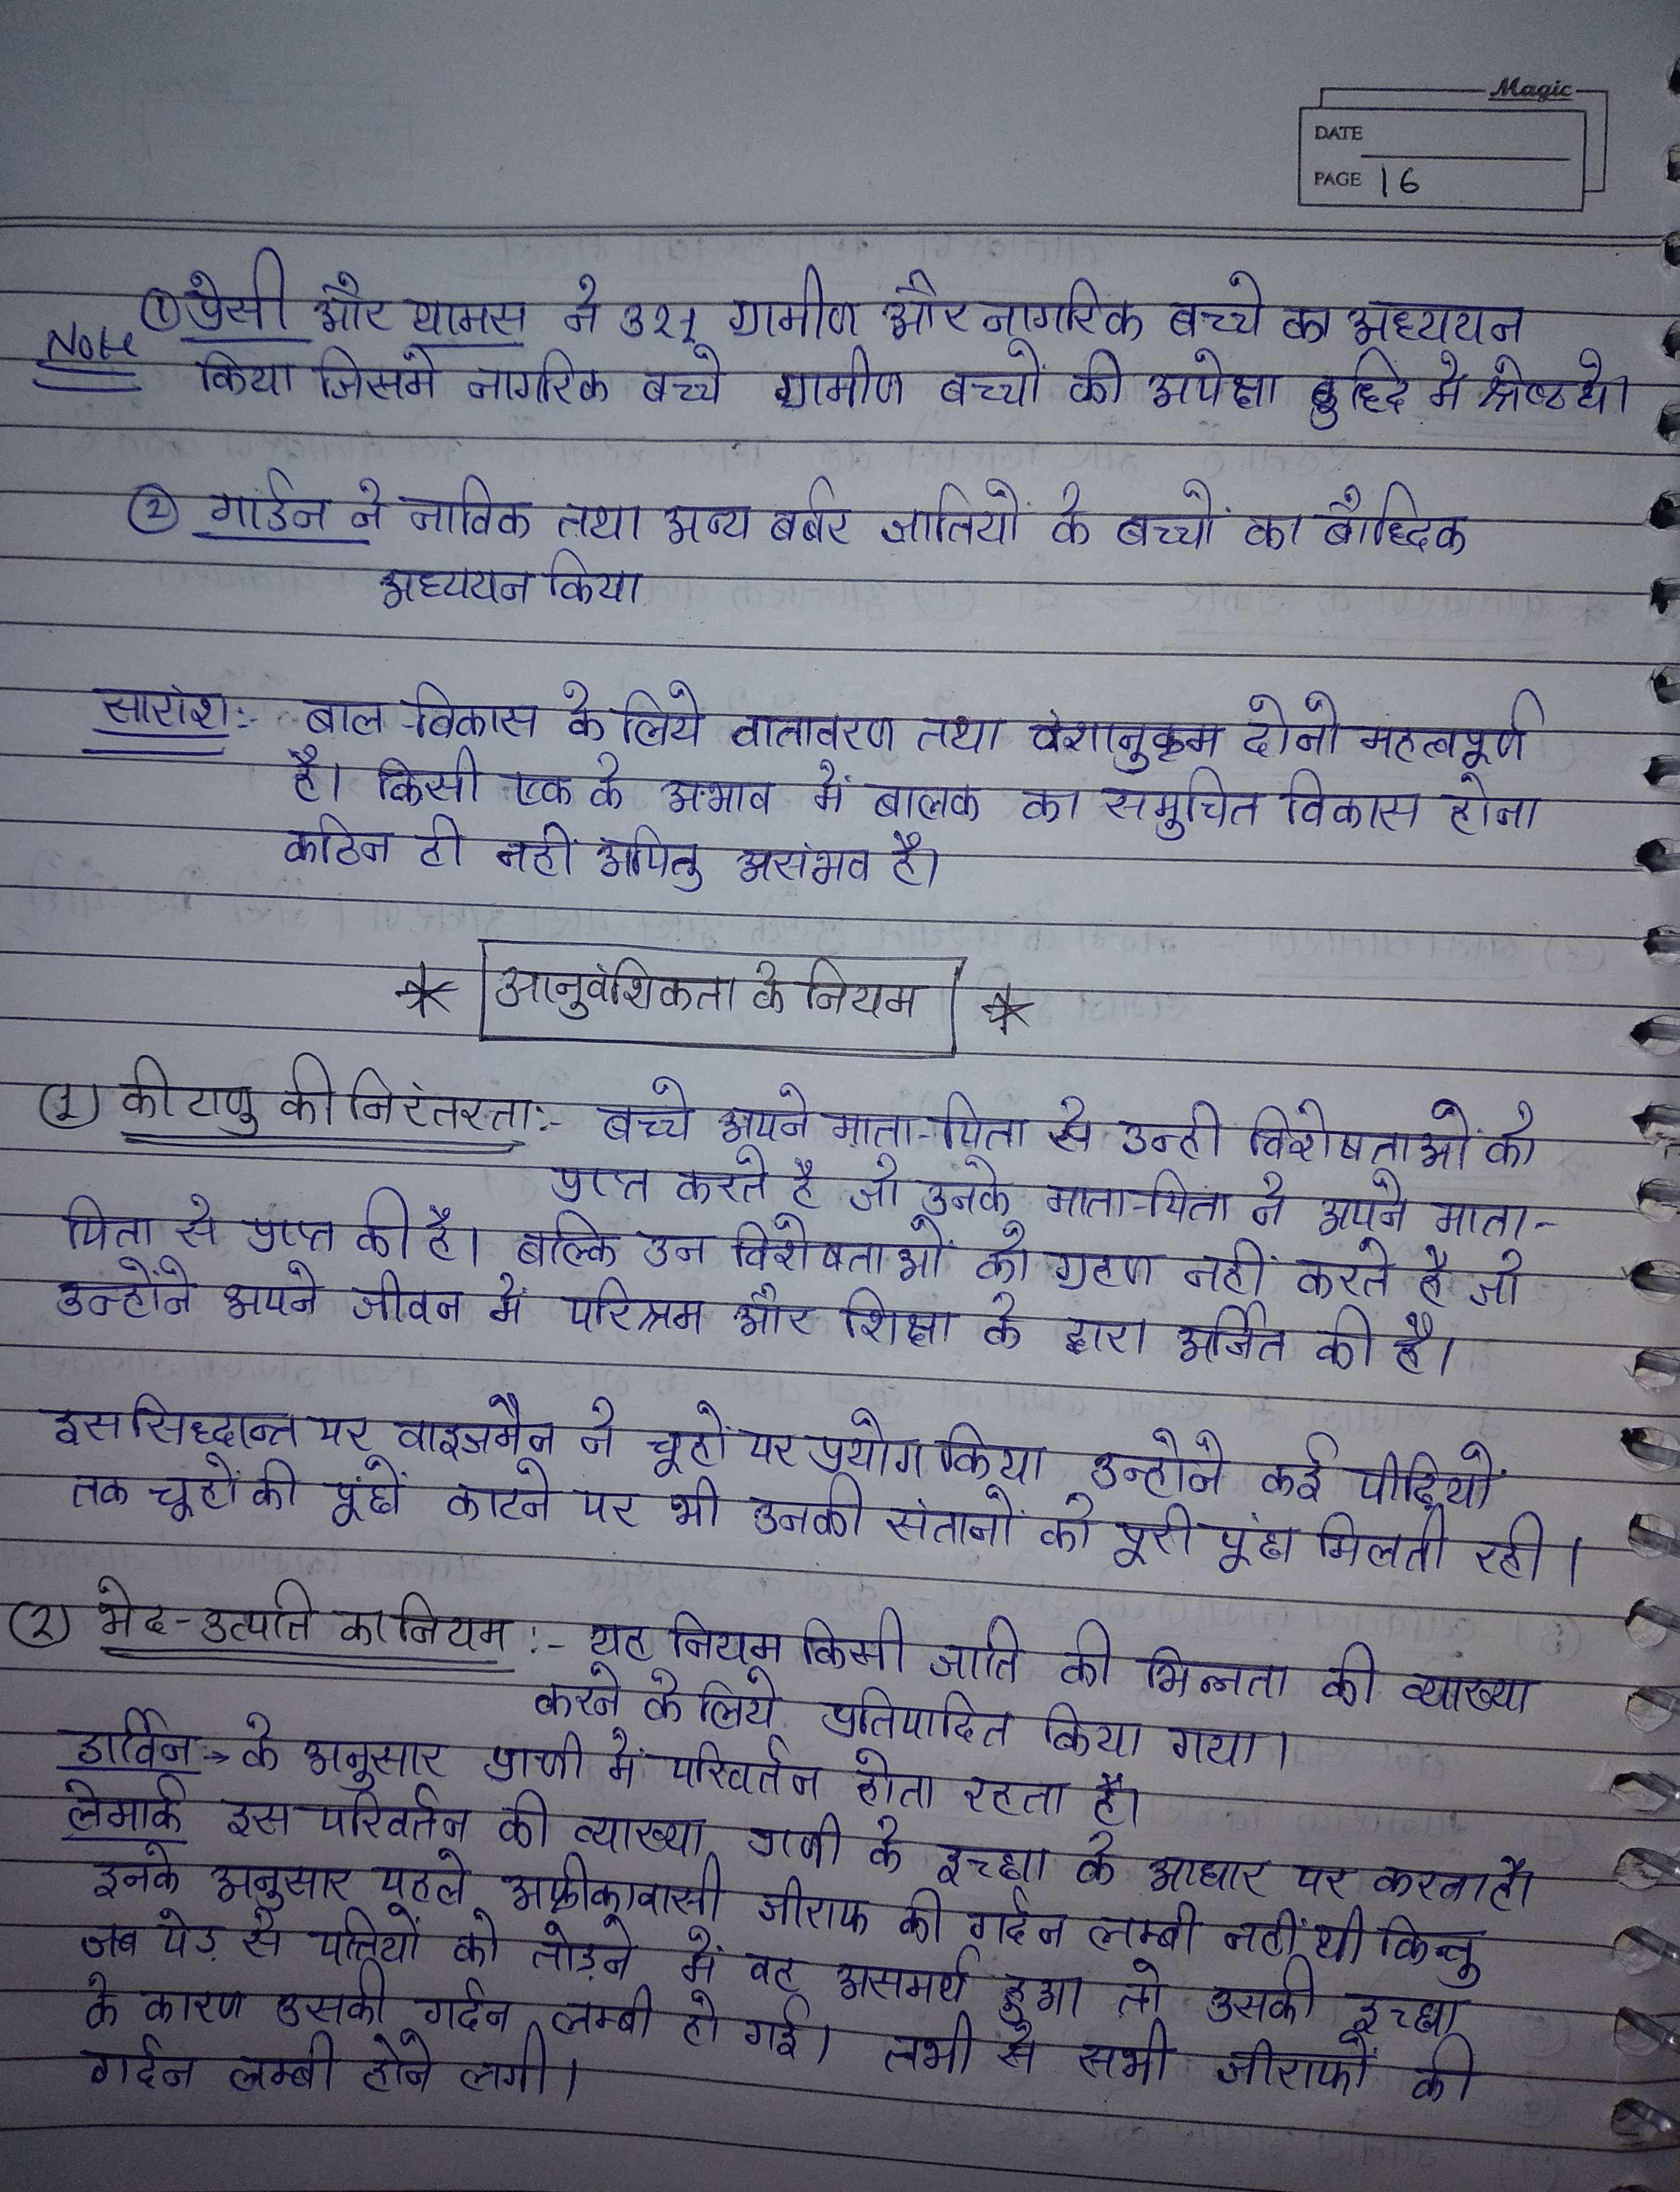 Magic
DATE
PAGE 16
① प्रेसी और थामस ने 321 ग्रामीण और नागरिक बच्चे का अध्ययन
Note
किया जिसमे नागरिक बच्चे ग्रामीण बच्चों की अपेक्षा बुद्धि में श्रेष्ठ थे।
② गार्डन ने नाविक तथा अन्य बर्बर जातियों के बच्चों का बौद्धिक
अध्ययन किया
सारांश:- बाल-विकास के लिये वातावरण तथा वंशानुक्रम दोनो महत्वपूर्ण
है। किसी एक के अभाव में बालक का समुचित विकास होना
कठिन ही नही अपितु असंभव है।
* आनुवंशिकता के नियम *
(1) कीटाणु की निरंतरता:- बच्चे अपने माता-पिता से उन्ही विशेषताओं को
प्राप्त करते है जो उनके माता-पिता ने अपने माता-
पिता से प्राप्त की है। बल्कि उन विशेषताओं को ग्रहण नहीं करते है जो
उन्होंने अपने जीवन में परिश्रम और शिक्षा के द्वारा अर्जित की है।
इस सिद्धान्त पर वाइजमैन ने चूहों पर प्रयोग किया उन्होने कई पीढ़ियों
तक चूहों की पूंछें काटने पर भी उनकी संतानों को पूरी पूंछ मिलती रही।
(2) भेद-उत्पति का नियम :- यह नियम किसी जाति की भिन्नता की व्याख्या
करने के लिये प्रतिपादित किया गया।
डार्विन → के अनुसार प्राणी में परिवर्तन होता रहता है।
लेमार्क इस परिवर्तन की व्याख्या प्राणी के इच्छा के आधार पर करता है।
इनके अनुसार पहले अफ्रीकावासी जीराफ की गर्दन लम्बी नहीं थी किन्तु
जब पेड़ से पत्तियों को तोड़ने में वह असमर्थ हुआ तो उसकी इच्छा
के कारण उसकी गर्दन लम्बी हो गई। तभी से सभी जीराफों की
गर्दन लम्बी होने लगी।